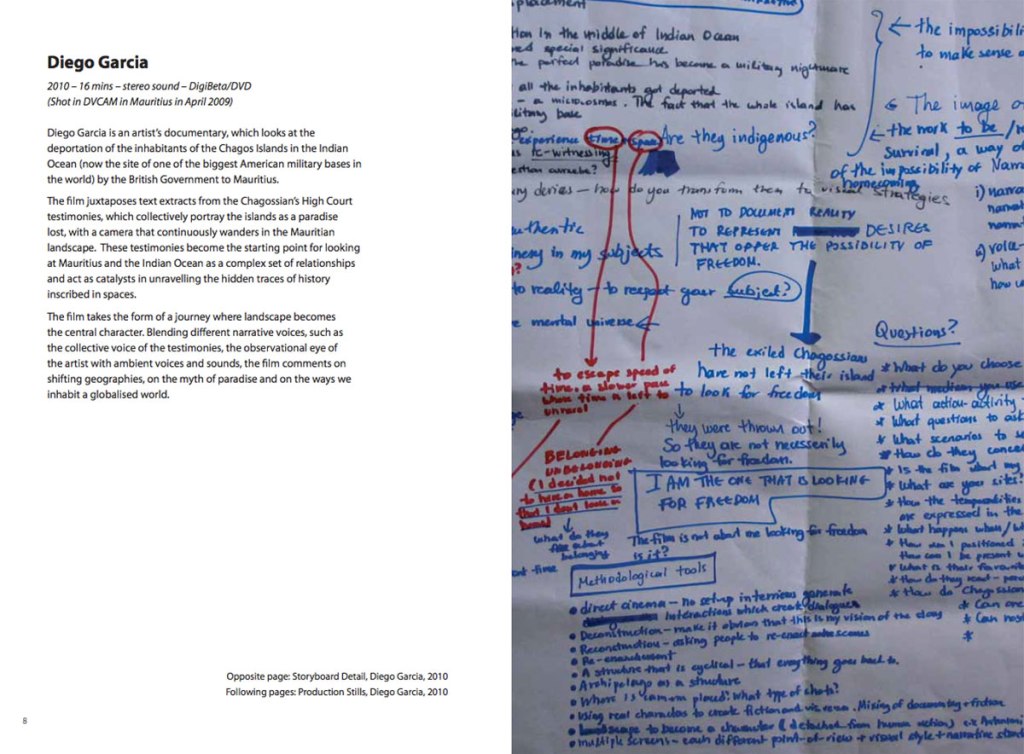 Diego Garcia
2010 – 16 mins – stereo sound – DigiBeta/DVD
(Shot in DVCAM in Mauritius in April 2009)
Diego Garcia is an artist's documentary, which looks at the
deportation of the inhabitants of the Chagos Islands in the Indian
Ocean (now the site of one of the biggest American military bases in
the world) by the British Government to Mauritius.
The film juxtaposes text extracts from the Chagossian's High Court
testimonies, which collectively portray the islands as a paradise
lost, with a camera that continuously wanders in the Mauritian
landscape. These testimonies become the starting point for looking
at Mauritius and the Indian Ocean as a complex set of relationships
and act as catalysts in unravelling the hidden traces of history
inscribed in spaces.
The film takes the form of a journey where landscape becomes
the central character. Blending different narrative voices, such as
the collective voice of the testimonies, the observational eye of
the artist with ambient voices and sounds, the film comments on
shifting geographies, on the myth of paradise and on the ways we
inhabit a globalised world.
Opposite page: Storyboard Detail, Diego Garcia, 2010
Following pages: Production Stills, Diego Garcia, 2010
8
in the middle of Indian Ocean
special significance
perfect paradise has become a military nightmare
all the inhabitants got deported
– a microcosmos. The fact that the whole island has
base
experience time space Are they indigenous?
re-witnessing
← the impossibili
to make sense o
← The image o
← the work to be /
Survival, a way o
of the impossibility of
homecoming
– how do you transform them to visual strategies
NOT TO DOCUMENT REALITY
TO REPRESENT DESIRES
THAT OFFER THE POSSIBILITY OF
FREEDOM.
in my subjects
to reality – to respect your subject?
mental universe
to escape speed of
time, a slower pace
where time is left to
unravel
the exiled Chagossians
have not left their island
to look for freedom
they were thrown out!
So they are not necessarily
looking for freedom.
I AM THE ONE THAT IS LOOKING
FOR FREEDOM
The film is not about me looking for freedom
is it?
BELONGING
UNBELONGING
(I decided not
to have a home so
that I don't look a
what do they
belonging
Questions?
* What do you choose
* What medium you use
* What action-activity
* What questions to as
* What scenarios to
* How do they
* Is the film about my
* What are your sites?
* How the temporalities
are expressed in the
* What happens when/
* How am I positioned
How can I be present
* What is their favourit
* How do they
* How do Chagossian
* Can
* Can
*
Methodological tools
• direct cinema – no set-up interviews generate
interactions which create dialogues
• Deconstruction – make it obvious that this is my vision of the story
• Reconstruction – asking people to re-enact some scenes
• Re-enactment
• A structure that is cyclical – that everything goes back to.
• Archipelago as a structure
• Where is camera placed? What type of shots?
• Using real characters to create fiction and vice versa. Mixing of documentary + fiction
• Landscape to become a character (detached from human action)
• multiple screens – each different point-of-view + visual style + narrative